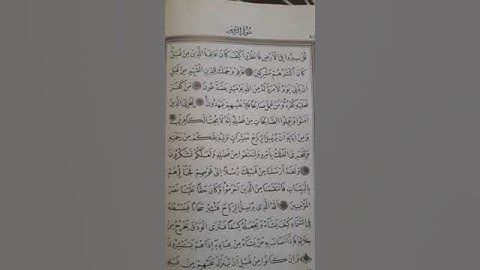 سُورَةُ الرُّومِ
قُلْ سِيرُوا فِي الْأَرْضِ فَانظُرُوا كَيْفَ كَانَ عَاقِبَةُ الَّذِينَ مِن قَبْلُ
كَانَ أَكْثَرُهُم مُّشْرِكِينَ فَأَقِمْ وَجْهَكَ لِلدِّينِ الْقَيِّمِ مِن قَبْلِ
أَن يَأْتِيَ يَوْمٌ لَّا مَرَدَّ لَهُ مِنَ اللَّهِ يَوْمَئِذٍ يَصَّدَّعُونَ مَن كَفَرَ
فَعَلَيْهِ كُفْرُهُ وَمَنْ عَمِلَ صَالِحًا فَلِأَنفُسِهِمْ يَمْهَدُونَ لِيَجْزِيَ الَّذِينَ
آمَنُوا وَعَمِلُوا الصَّالِحَاتِ مِن فَضْلِهِ إِنَّهُ لَا يُحِبُّ الْكَافِرِينَ
وَمِنْ آيَاتِهِ أَن يُرْسِلَ الرِّيَاحَ مُبَشِّرَاتٍ وَلِيُذِيقَكُم مِّن رَّحْمَتِهِ
وَلِتَجْرِيَ الْفُلْكُ بِأَمْرِهِ وَلِتَبْتَغُوا مِن فَضْلِهِ وَلَعَلَّكُمْ تَشْكُرُونَ
وَلَقَدْ أَرْسَلْنَا مِن قَبْلِكَ رُسُلًا إِلَىٰ قَوْمِهِمْ فَجَاءُوهُم
بِالْبَيِّنَاتِ فَانتَقَمْنَا مِنَ الَّذِينَ أَجْرَمُوا وَكَانَ حَقًّا عَلَيْنَا نَصْرُ
الْمُؤْمِنِينَ اللَّهُ الَّذِي يُرْسِلُ الرِّيَاحَ فَتُثِيرُ سَحَابًا فَيَبْسُطُهُ
فِي السَّمَاءِ كَيْفَ يَشَاءُ وَيَجْعَلُهُ كِسَفًا فَتَرَى الْوَدْقَ يَخْرُجُ مِنْ
خِلَالِهِ فَإِذَا أَصَابَ بِهِ مَن يَشَاءُ مِنْ عِبَادِهِ إِذَا هُمْ يَسْتَبْشِرُونَ
وَإِن كَانُوا مِن قَبْلِ أَن يُنَزَّلَ عَلَيْهِم مِّن قَبْلِهِ